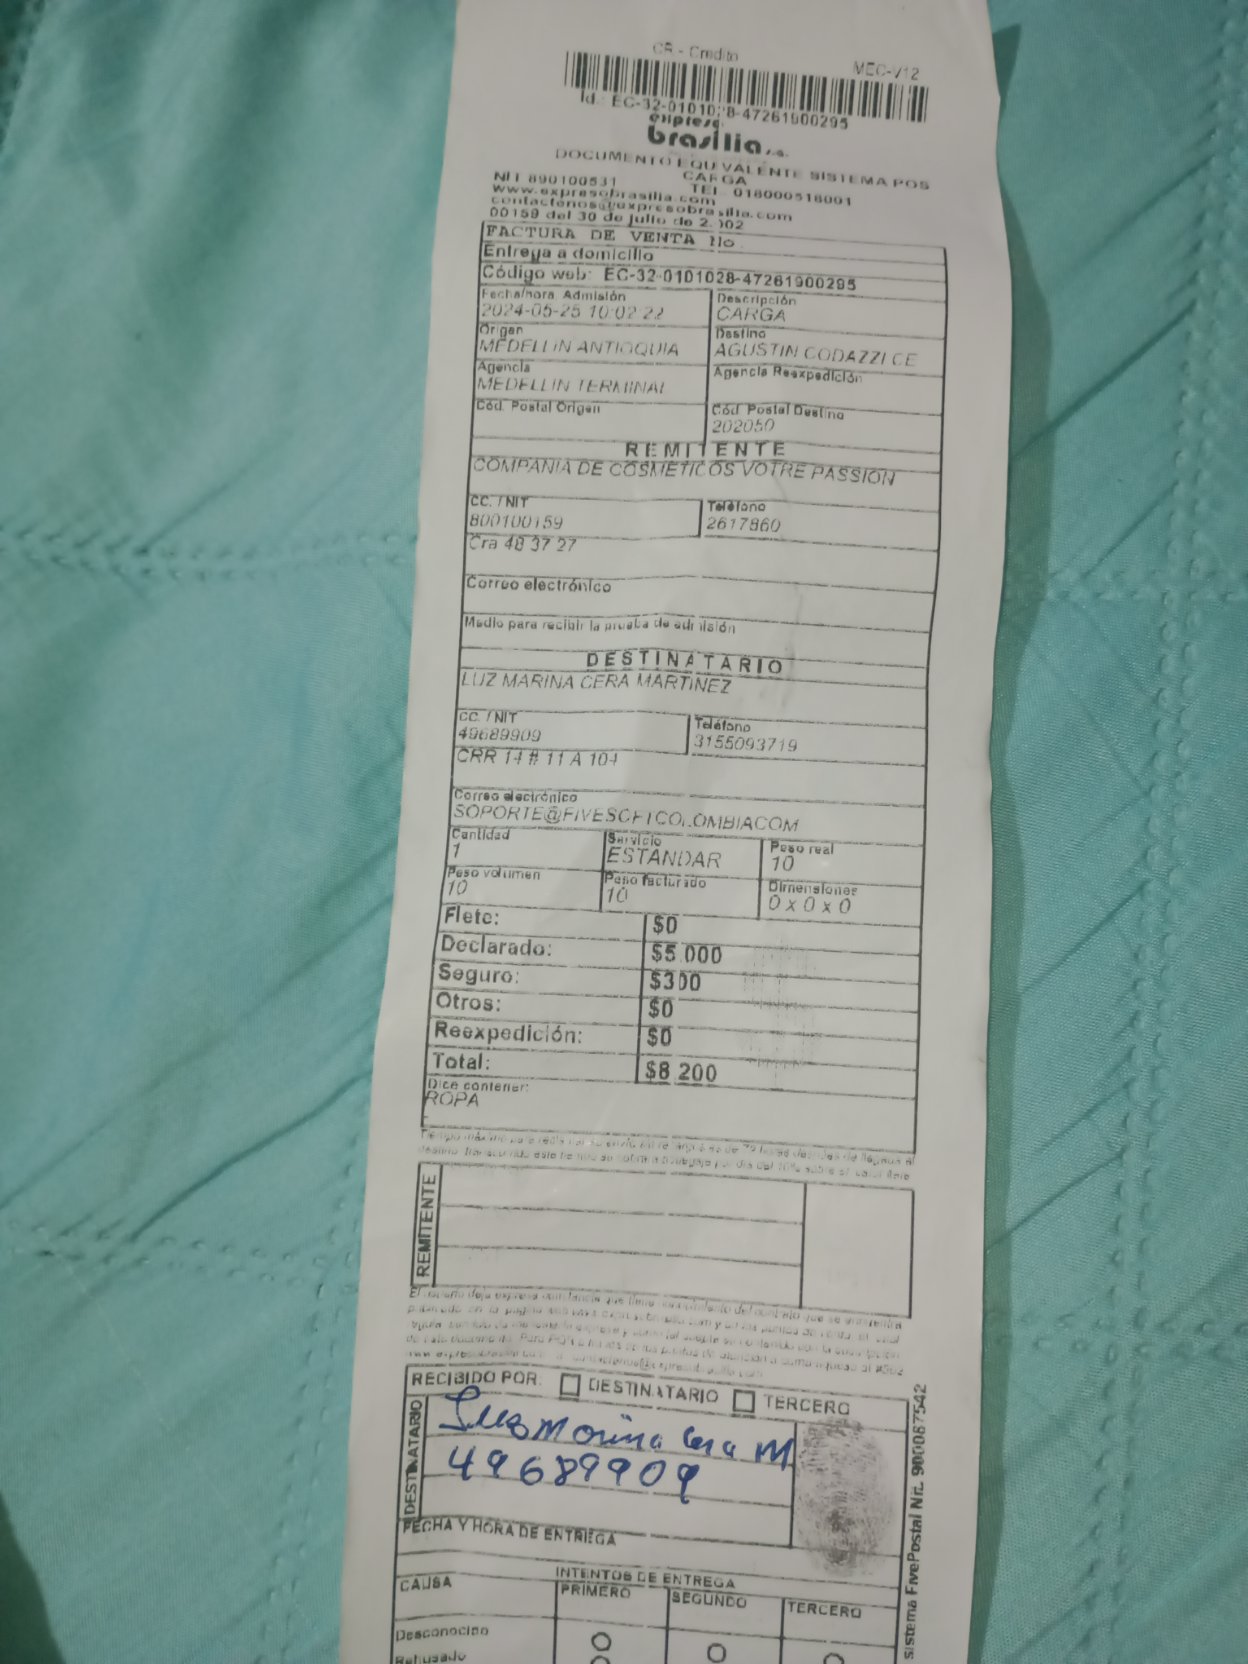 CR - Credito
MEC-V12
Id.: EC-32-0101028-47261900295
expreso
brasilia s.a.
DOCUMENTO EQUIVALENTE SISTEMA POS
CARGA
NIT 890100531 TEL 018000518001
www.expresobrasilia.com
contactenos@expresobrasilia.com
00159 del 30 de julio de 2002
FACTURA DE VENTA No
Entrega a domicilio
Código web: EC-32-0101028-47261900295
Fecha/hora Admisión Descripción
2024-05-25 10:02:22 CARGA
Origen Destino
MEDELLIN ANTIOQUIA AGUSTIN CODAZZI CE
Agencia Agencia Reexpedición
MEDELLIN TERMINAL
Cód. Postal Origen Cód Postal Destino
202050
REMITENTE
COMPANIA DE COSMETICOS VOTRE PASSION
CC. / NIT Teléfono
800100159 2617860
Cra 48 37 27
Correo electrónico
Medio para recibir la prueba de admisión
DESTINATARIO
LUZ MARINA CERA MARTINEZ
CC. / NIT Teléfono
49689909 3155093719
CRR 14 # 11 A 104
Correo electrónico
SOPORTE@FIVESOFTCOLOMBIACOM
Cantidad Servicio Peso real
1 ESTANDAR 10
Peso volumen Peso facturado Dimensiones
10 10 0 x 0 x 0
Flete: $0
Declarado: $5.000
Seguro: $300
Otros: $0
Reexpedición: $0
Total: $8.200
Dice contener:
ROPA
REMITENTE
RECIBIDO POR: DESTINATARIO TERCERO
DESTINATARIO
Luz Marina Cera M
49689909
FECHA Y HORA DE ENTREGA
INTENTOS DE ENTREGA
CAUSA PRIMERO SEGUNDO TERCERO
Desconocido
Rehusado
sistema FivePostal Nit. 900087542